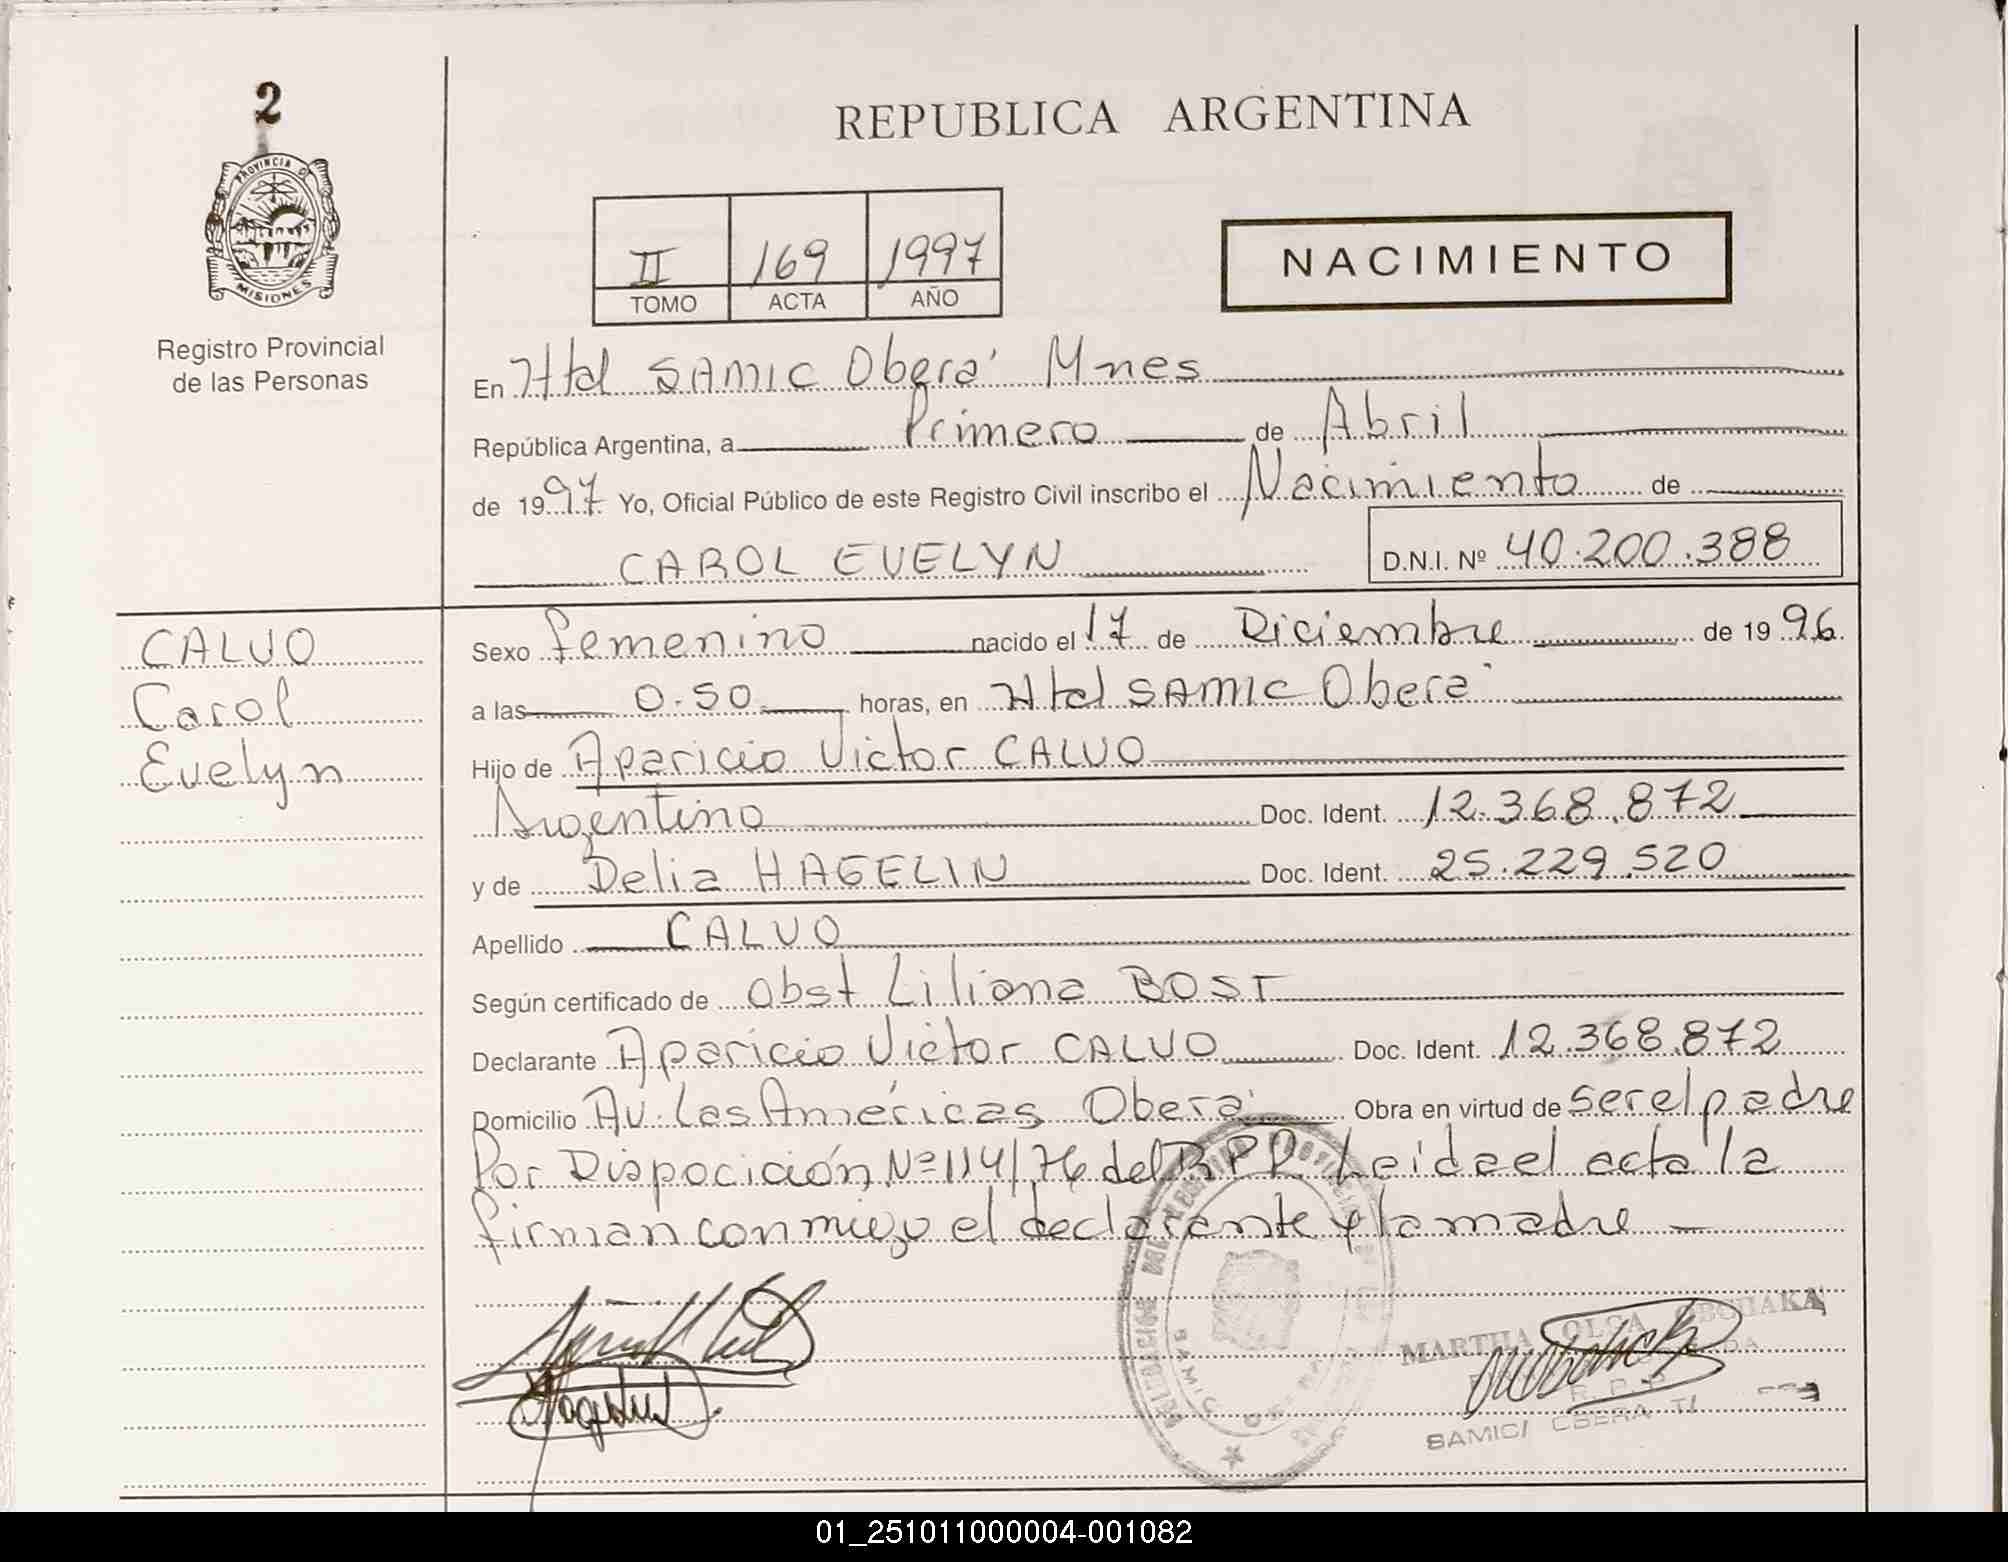 2
REPUBLICA ARGENTINA
PROVINCIA D
MISIONES
Registro Provincial
de las Personas
II 169 1997
TOMO ACTA AÑO
NACIMIENTO
En Htal SAMIC Oberá Mnes
República Argentina, a Primero de Abril
de 1997 Yo, Oficial Público de este Registro Civil inscribo el Nacimiento de
CAROL EVELYN D.N.I. Nº 40.200.388
CALVO
Carol
Evelyn
Sexo femenino nacido el 17 de Diciembre de 1996.
a las 0.50 horas, en Htal SAMIC Oberá
Hijo de Aparicio Victor CALVO
Argentino Doc. Ident. 12.368.872
y de Delia HAGELIN Doc. Ident. 25.229.520
Apellido CALVO
Según certificado de Obst Liliana BOST
Declarante Aparicio Victor CALVO Doc. Ident. 12.368.872
Domicilio Av. Las Américas Oberá Obra en virtud de ser el padre
Por Disposición Nº 114/76 del R.P.P. Leida el acta la
firman conmigo el declarante y la madre
MARTHA OLGA
R.P.P.
SAMIC/ OBERA
01_251011000004-001082